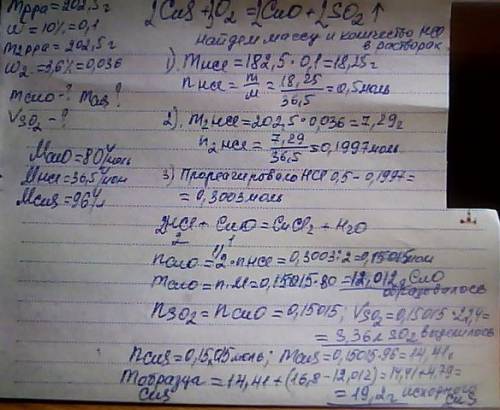 mрра = 202,5 г
W = 10% = 0,1
m2рра = 202,5 г
W2 = 3,6% = 0,036
mCuO - ? mCuS ?
VSO2 - ?
MCuO = 80 г/моль
MHCl = 36,5 г/моль
MCuS = 96 г/
2CuS + 3O2 = 2CuO + 2SO2↑
Найдем массу и количество HCl
в растворах
1) mHCl = 182,5 · 0,1 = 18,25 г
nHCl = m/M = 18,25/36,5 = 0,5 моль
2) m2HCl = 202,5 · 0,036 = 7,29 г
n2HCl = 7,29/36,5 = 0,1997 моль
3) Прореагировало HCl 0,5 - 0,1997 =
= 0,3003 моль
2HCl + CuO = CuCl2 + H2O
2 1
nCuO = 1/2 · nHCl = 0,3003 : 2 = 0,15015 моль
mCuO = n · M = 0,15015 · 80 = 12,012 г CuO
образовалось
nSO2 = nCuO = 0,15015; VSO2 = 0,15015 · 22,4 =
= 3,36 л SO2 выделилось
nCuS = 0,15015 моль; mCuS = 0,15015 · 96 = 14,41 г
mобразца CuS = 14,41 + (16,8 - 12,012) = 14,41 + 4,79 =
= 19,2 г исходного CuS